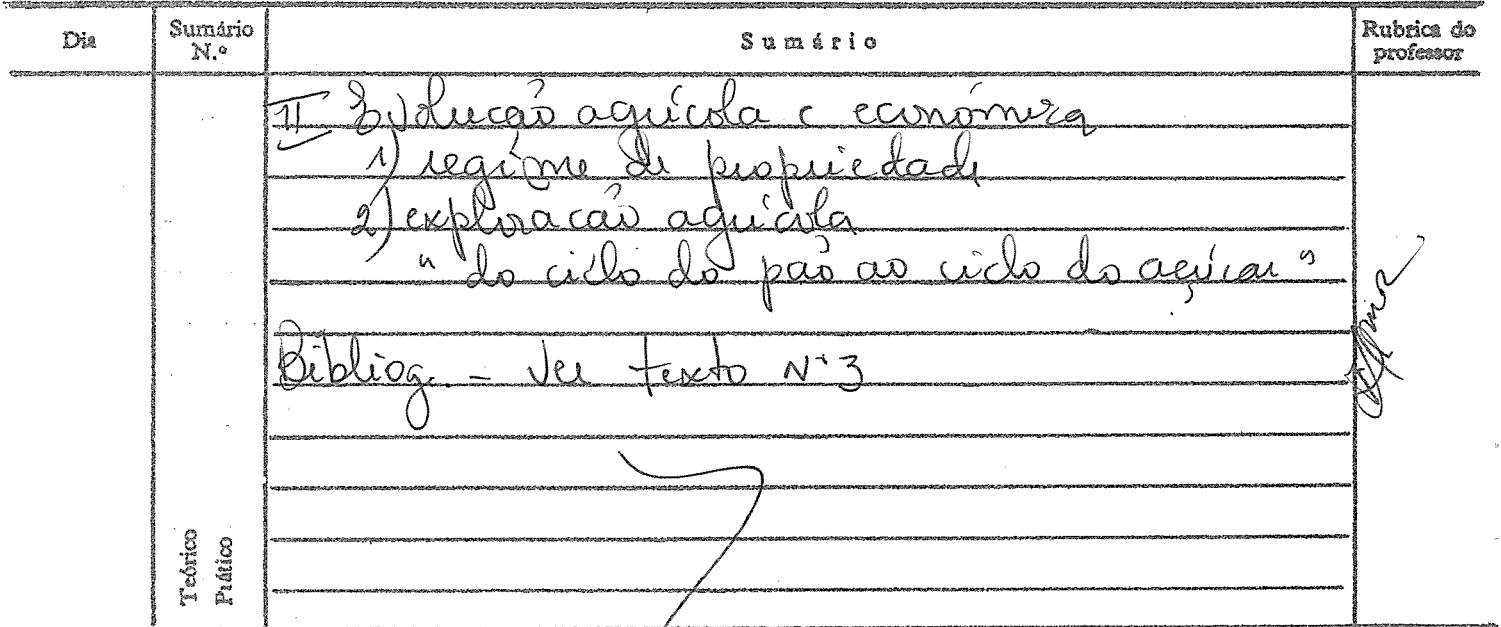 Dia Sumário N.º Sumário Rubrica do professor
II Evolução agrícola e económica
1) regime de propriedade
2) exploração agrícola
" do ciclo do pão ao ciclo do açúcar "
Bibliog. - Ver texto Nº 3
Teórico
Prático